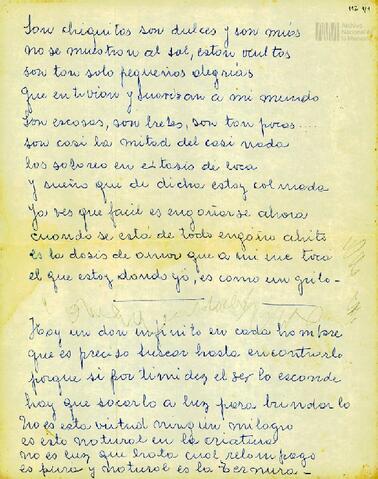 112 4/4
Archivo
Nacional de
la Memoria
Son chiquitos son dulces y son míos
no se muestran al sol, estan ocultos
son tan solo pequeños alegrías
que entivian y suavizan a mi mundo
Son escasos, son breves, son tan pocos....
son casi la mitad del casi nada
los saboreo en extasis de loca
y sueño que de dicha estoy colmada
Ya ves que facil es engañarse ahora
cuando se está de todo engaño ahito
es la dosis de amor que a mi me toca
el que estoy dando yó, es como un grito-
Hay un don infinito en cada hombre
que es preciso buscar hasta encontrarlo
porque si por timidez el ser lo esconde
hay que sacarlo a luz para brindarlo
No es esta virtud ningun milagro
es esto natural en la criatura
no es luz que brota cual relampago
es pura y natural es la ternura-